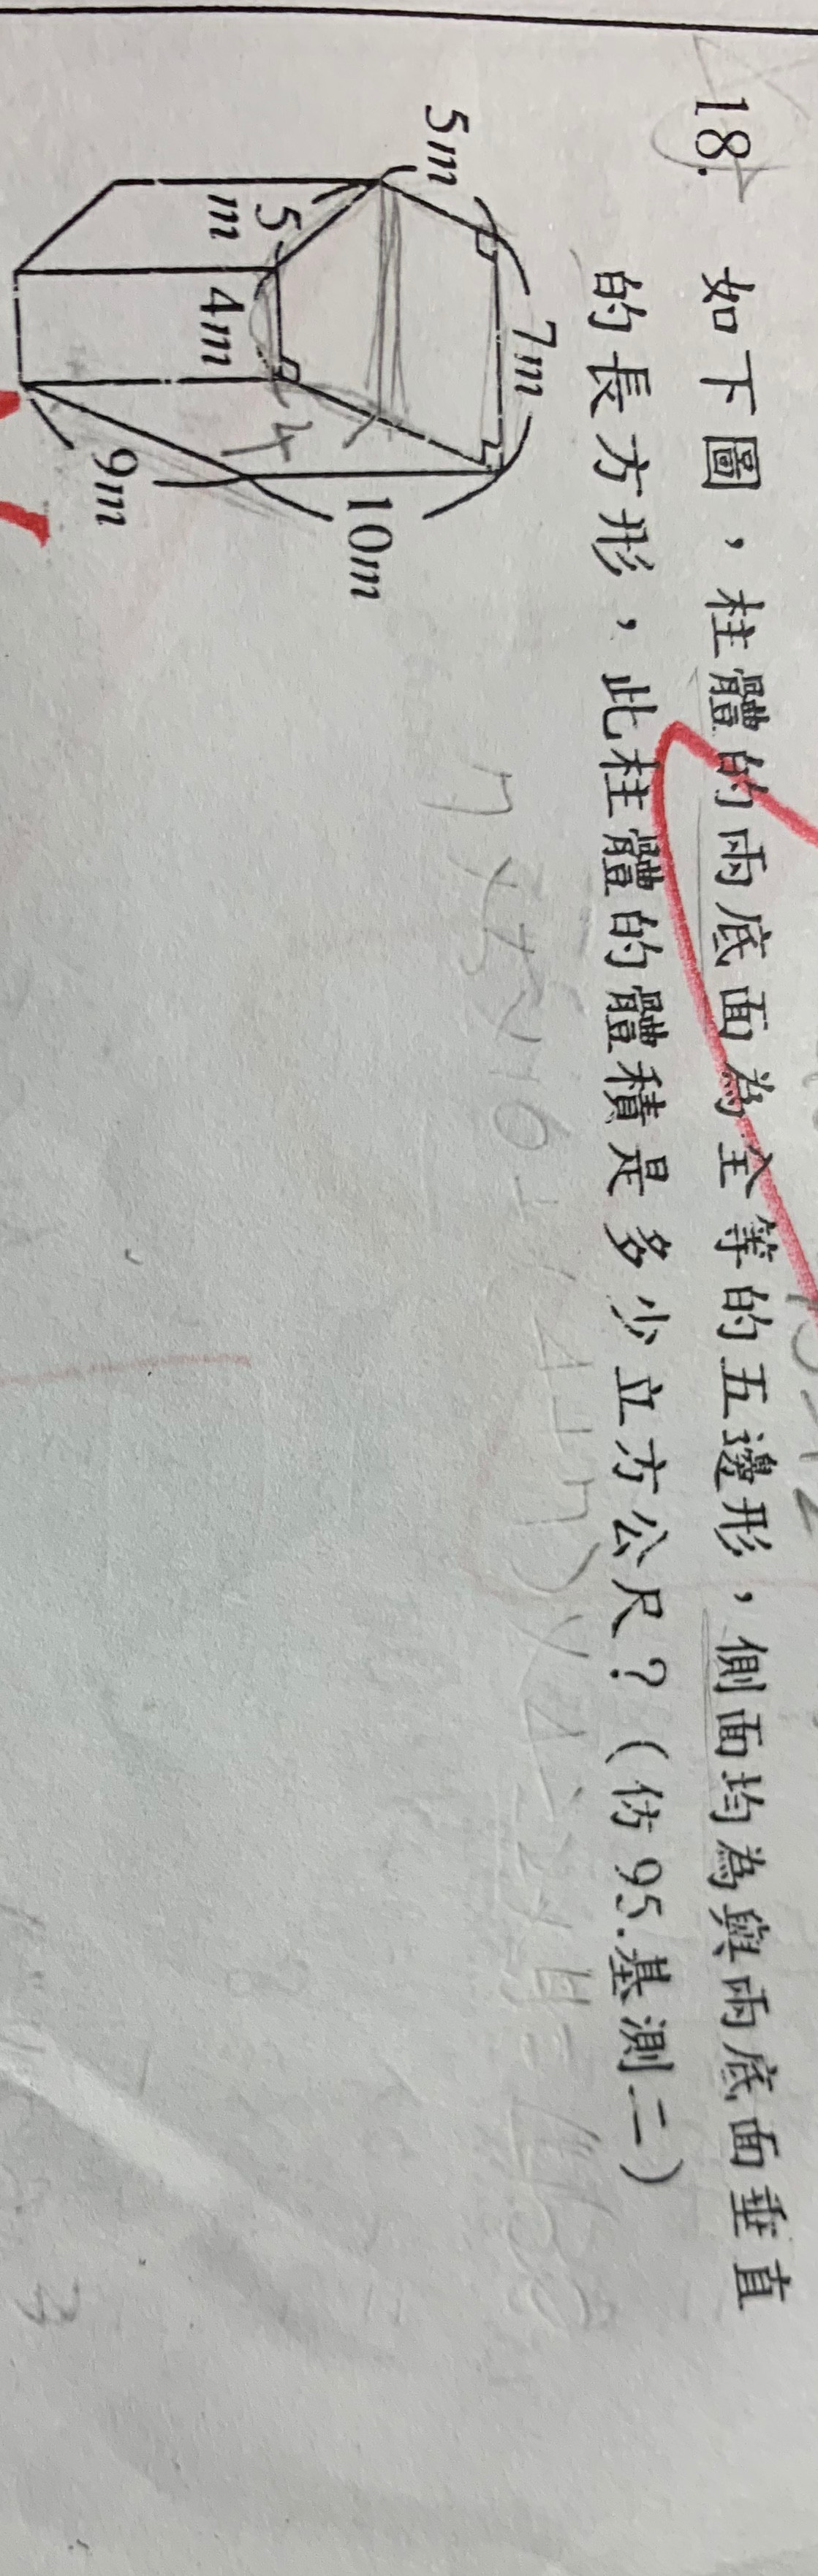 18. 如下圖，柱體的兩底面為全等的五邊形，側面均為與兩底面垂直
的長方形，此柱體的體積是多少立方公尺？（仿95.基測二）
7m
5m
5
m
4m
4
10m
9m